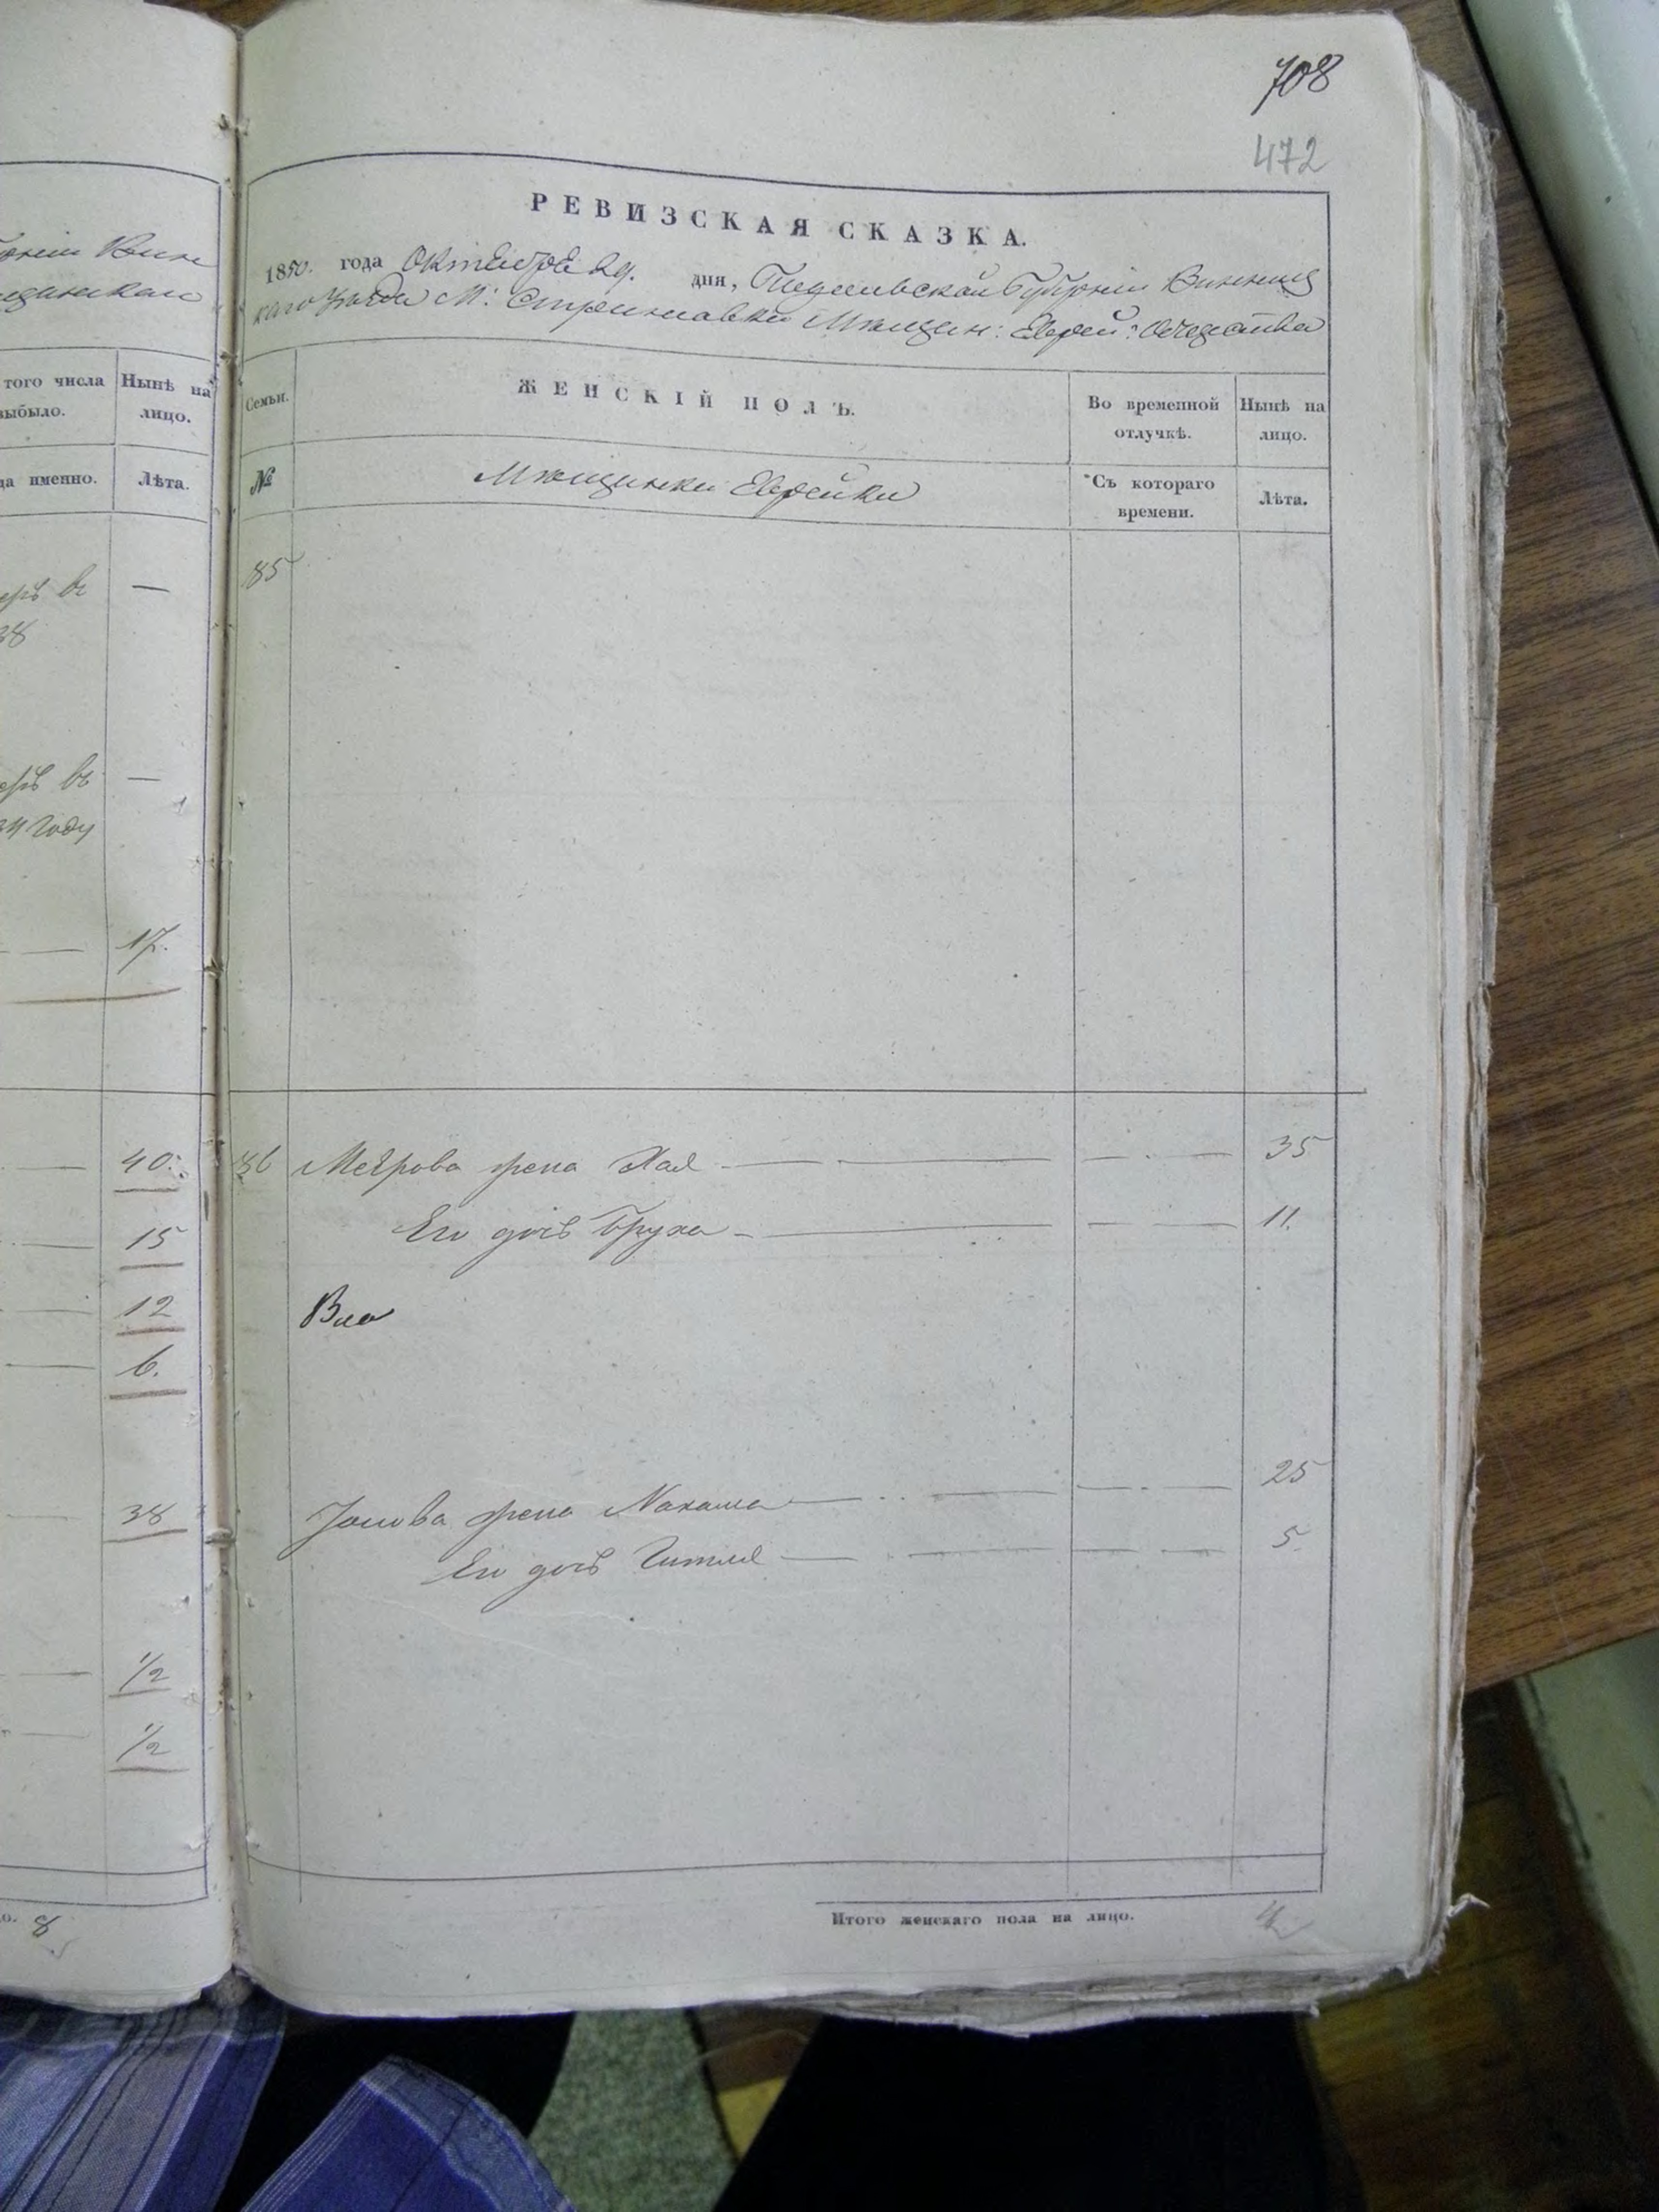 708
472
РЕВИЗСКАЯ СКАЗКА.
1850. года Октября 29. дня, Подольской Губернии Винниц
каго уѣзда М: Стрижавки Мѣщан: Еврей: Общества
того числа
выбыло.
Нынѣ на
лицо.
Семьи.
ЖЕНСКІЙ ПОЛЪ.
Во временной
отлучкѣ.
Нынѣ на
лицо.
да именно.
Лѣта.
№
Мѣщанки Еврейки
Съ котораго
времени.
Лѣта.
85
еръ въ —
38
еръ въ —
34 году
17.
40. 36 Меерова жена Хая 35
15 Его дочь Бруха 11.
12
6.
38 жена Нахама 25
Его дочь Гитля 5.
1/2
1/2
8
Итого женскаго пола на лицо. 4